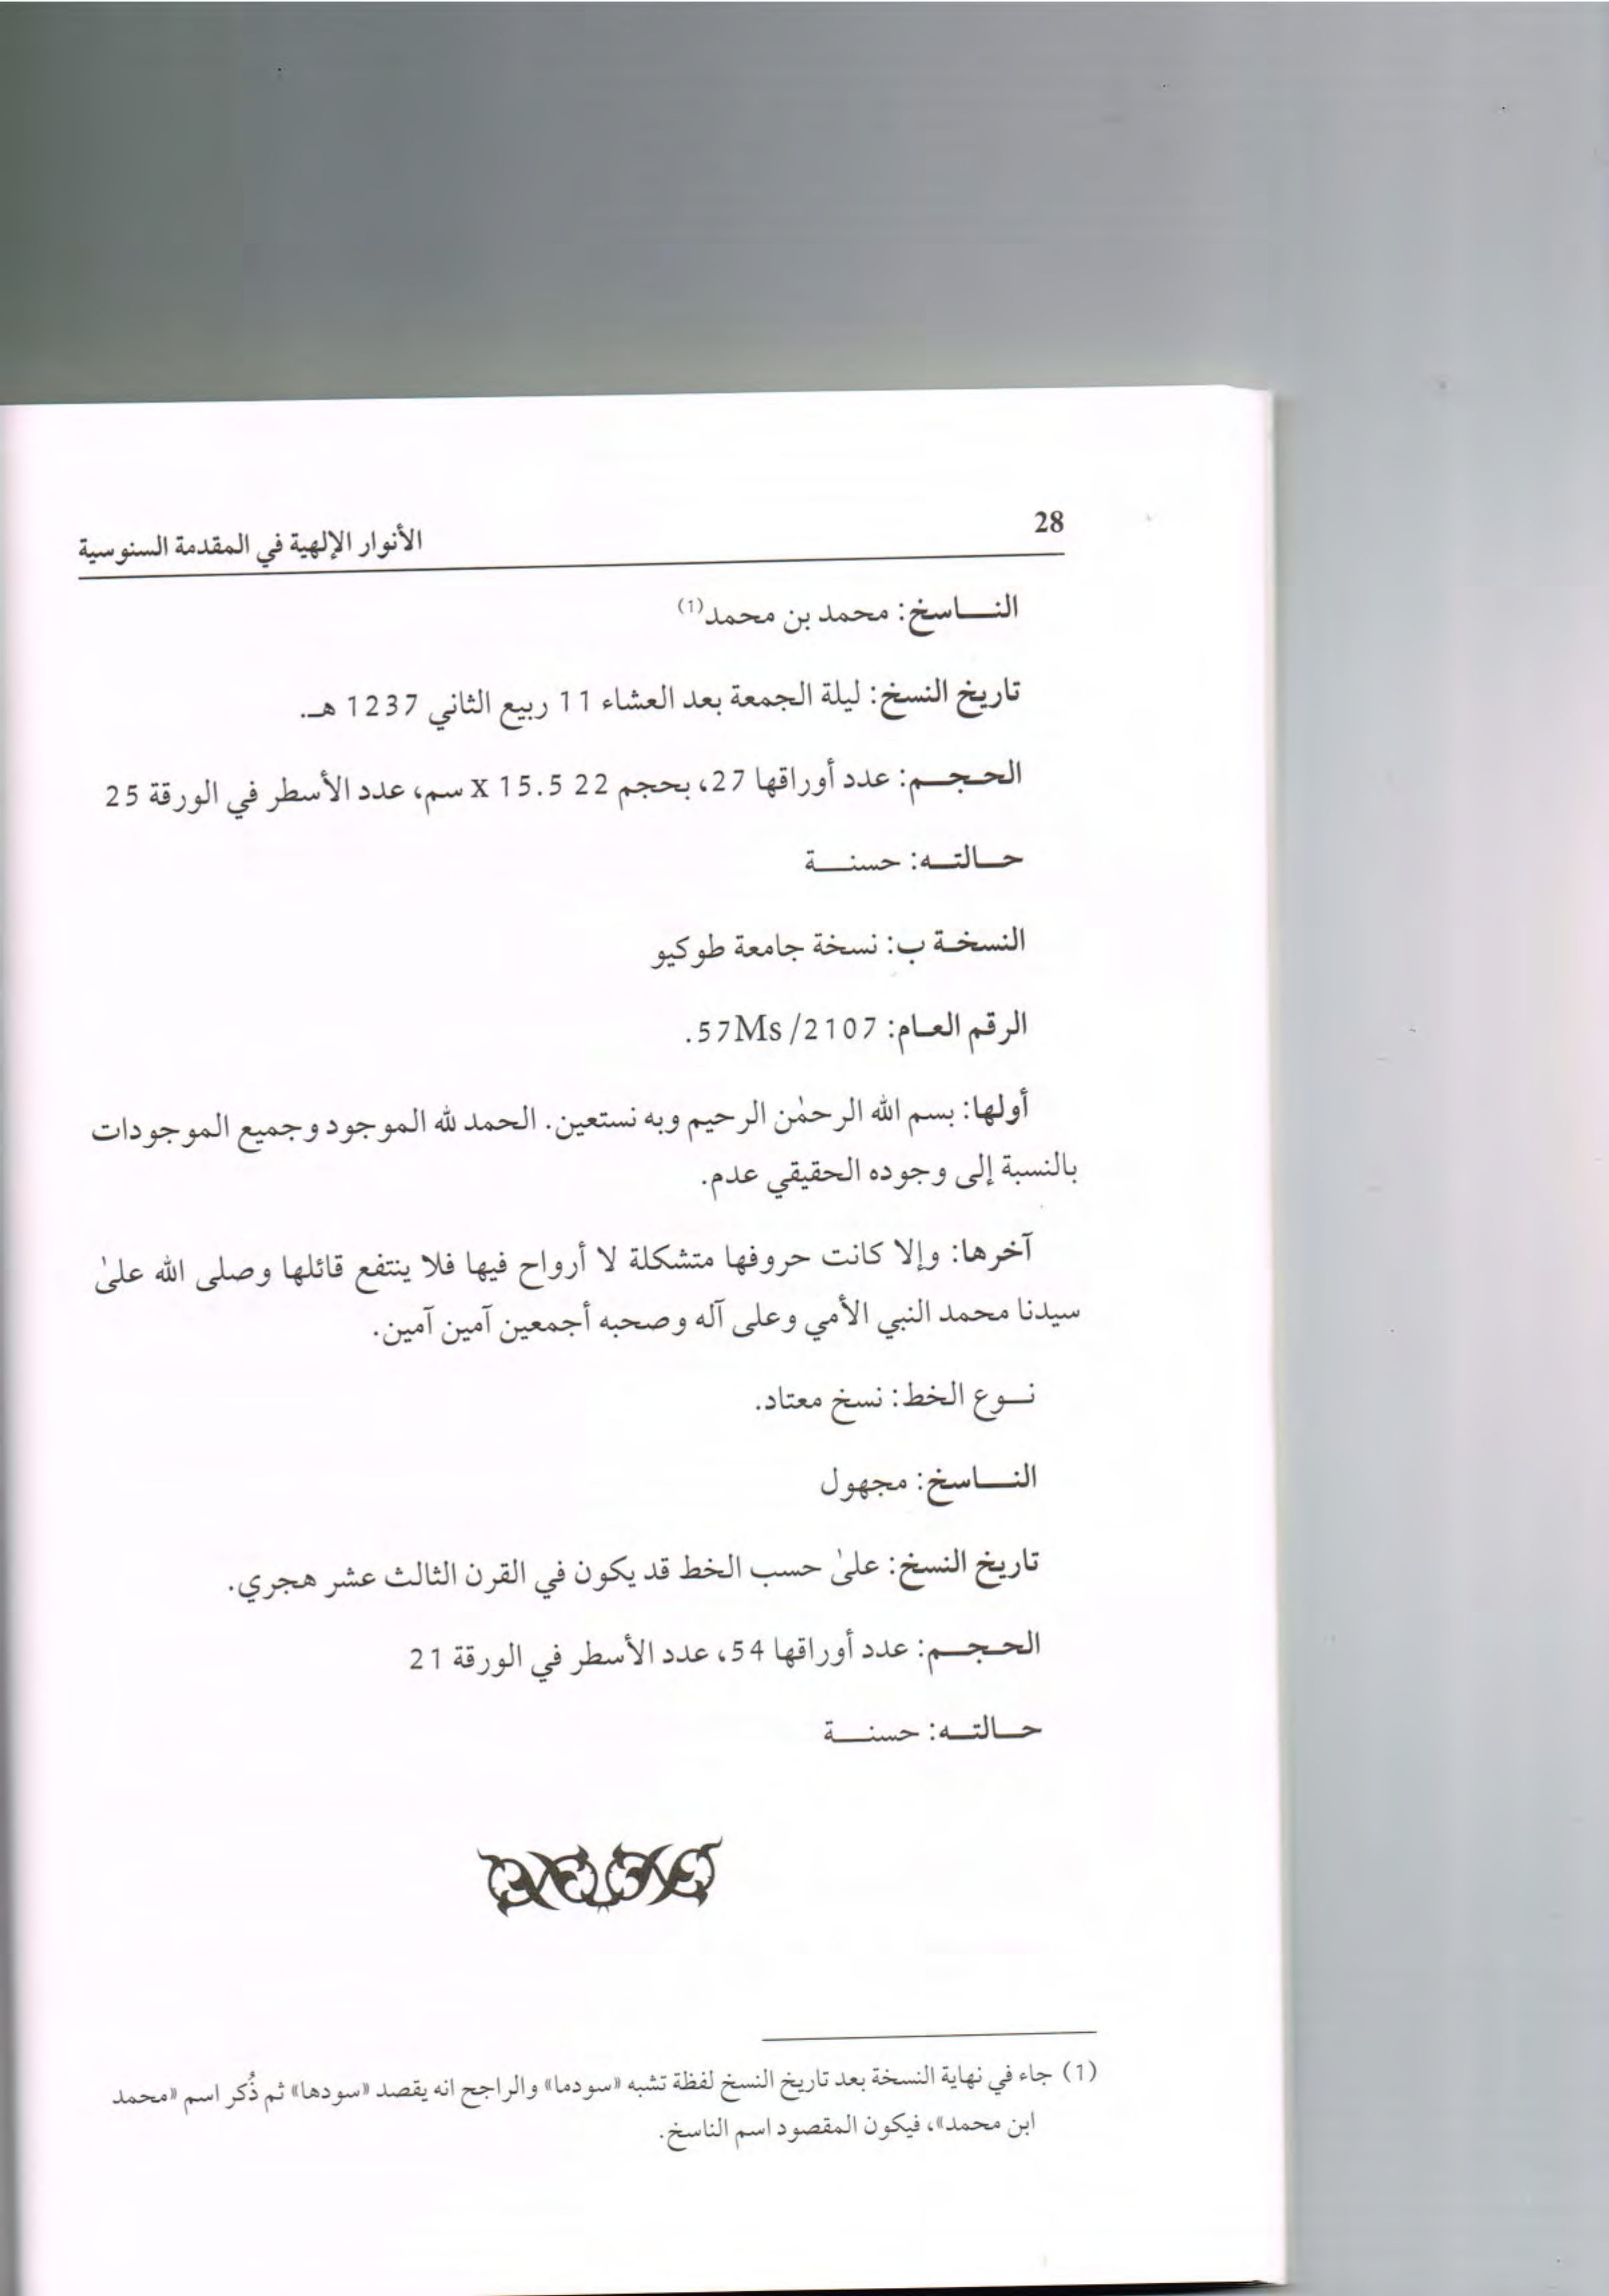 28
الأنوار الإلهية في المقدمة السنوسية
النـــاسخ: محمد بن محمد(1)
تاريخ النسخ: ليلة الجمعة بعد العشاء 11 ربيع الثاني 1237 هـ.
الحجـــم: عدد أوراقها 27، بحجم 22 x 15.5 سم، عدد الأسطر في الورقة 25
حـــالتـــه: حسنـــة
النسخـة ب: نسخة جامعة طوكيو
الرقم العـام: 2107/ 57Ms.
أولها: بسم الله الرحمٰن الرحيم وبه نستعين. الحمد لله الموجود وجميع الموجودات
بالنسبة إلى وجوده الحقيقي عدم.
آخرها: وإلا كانت حروفها متشكلة لا أرواح فيها فلا ينتفع قائلها وصلى الله علىٰ
سيدنا محمد النبي الأمي وعلى آله وصحبه أجمعين آمين آمين.
نـــوع الخط: نسخ معتاد.
النـــاسخ: مجهول
تاريخ النسخ: علىٰ حسب الخط قد يكون في القرن الثالث عشر هجري.
الحجـــم: عدد أوراقها 54، عدد الأسطر في الورقة 21
حـــالتـــه: حسنـــة
(1) جاء في نهاية النسخة بعد تاريخ النسخ لفظة تشبه «سودما» والراجح انه يقصد «سودها» ثم ذُكر اسم «محمد
ابن محمد»، فيكون المقصود اسم الناسخ.